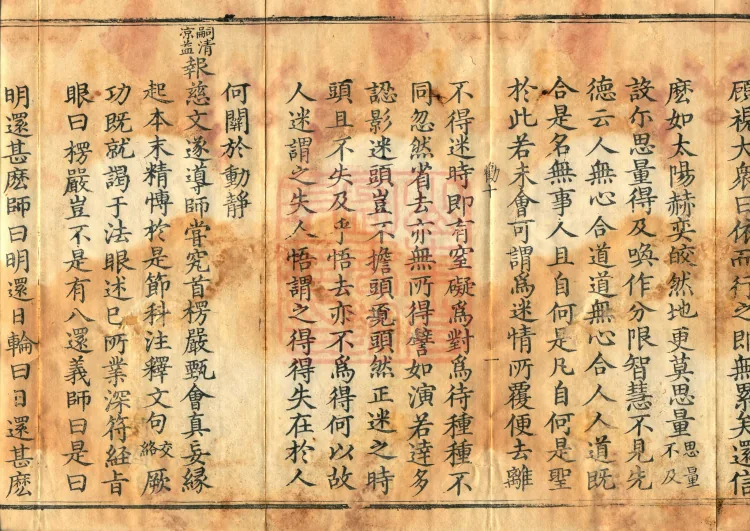 頋視大衆曰依而行之即無累矣還信
麽如太陽赫奕皎然地更莫思量思量不及
設尓思量得及喚作分限智慧不見先
德云人無心合道道無心合人人道既
合是名無事人且自何是凡自何是聖
於此若未會可謂爲迷情所覆便去離
勸十
一
不得迷時即有窒礙爲對爲待種種不
同忽然省去亦無所得譬如演若達多
認影迷頭豈不擔頭覔頭然正迷之時
頭且不失及乎悟去亦不爲得何以故
人迷謂之失人悟謂之得得失在於人
何關於動靜
嗣清涼益報慈文遂導師甞究首楞嚴甄會真妄緣
起本末精愽於是節科注釋文句交絡厥
功既就謁于法眼述己所業深符經旨
眼曰楞嚴豈不是有八還義師曰是曰
明還甚麽師曰明還日輪曰日還甚麽